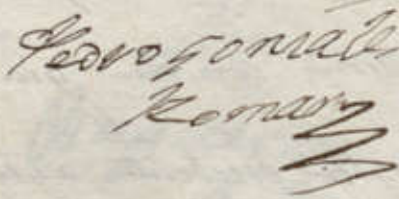 Pedro Gonzals
Roman